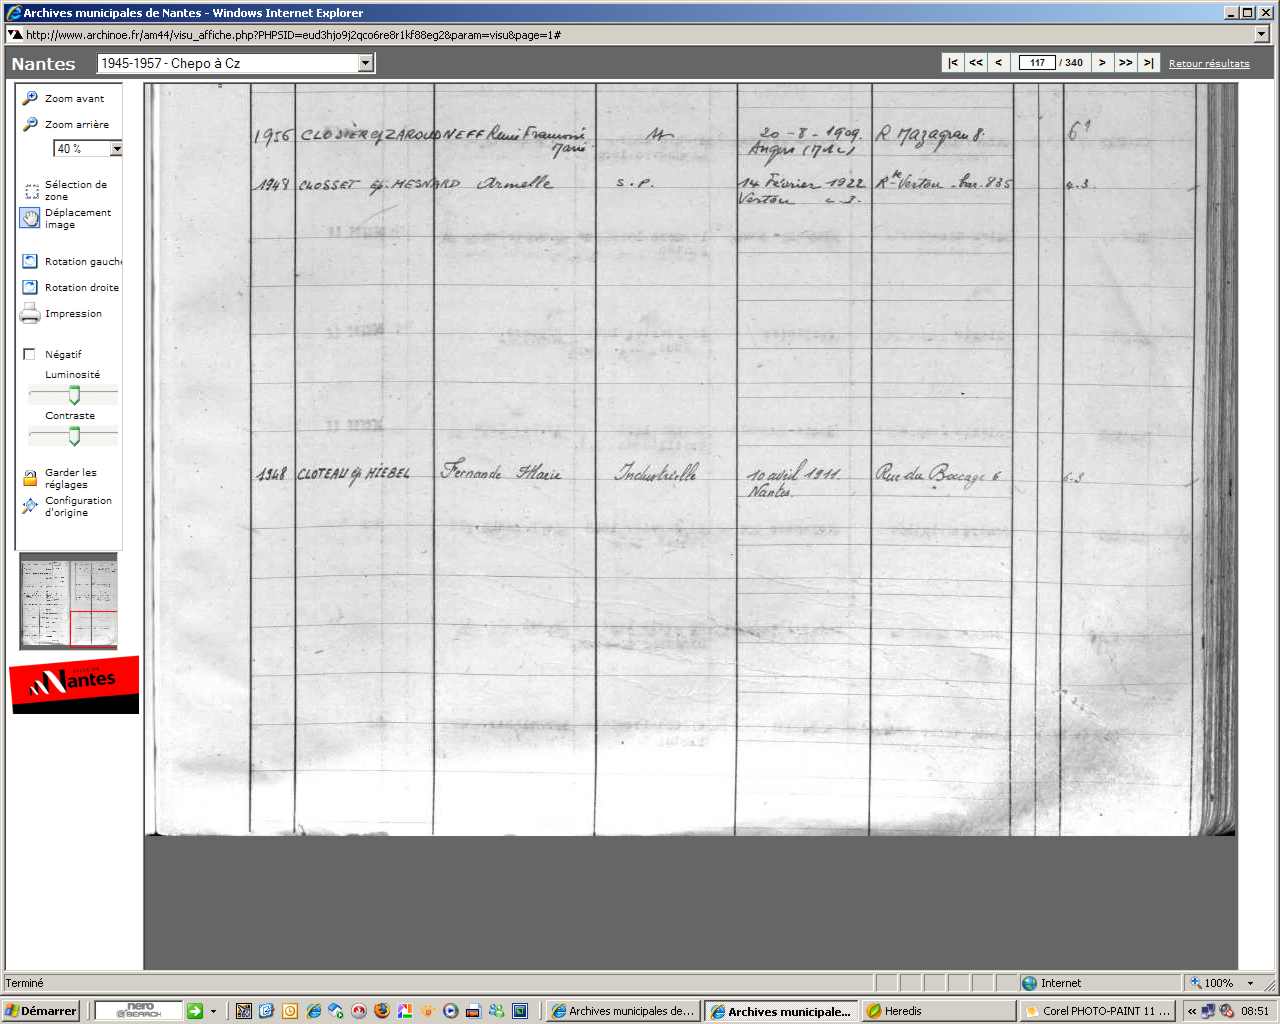 Archives municipales de Nantes - Windows Internet Explorer
http://www.archinoe.fr/am44/visu_affiche.php?PHPSID=eud3hjo9j2qco6re8r1kf88eg2&param=visu&page=1#
Nantes 1945-1957 - Chepo à Cz |< << < 117 / 340 > >> >| Retour résultats
Zoom avant
Zoom arrière
40 %
Sélection de
zone
Déplacement
image
Rotation gauch
Rotation droite
Impression
Négatif
Luminosité
Contraste
Garder les
réglages
Configuration
d'origine
Nantes
1956 CLOSIÈRE ép ZAROUDNEFF 20 - 8 - 1909. R Mazagran 8. 61
Marie Angers (M & L)
1948 CLOSSET ép. MESNARD Armelle S.P. 14 Février 1922 Rte Vertou - bar. 835 c.3.
Vertou L.I.
1948 CLOTEAU ép HIEBEL Fernande Marie Industrielle 10 avril 1911. Rue du Bocage 6 c.3
Nantes.
Terminé Internet 100%
Démarrer nero SEARCH Archives municipales de... Archives municipale... Heredis Corel PHOTO-PAINT 11 ... 08:51